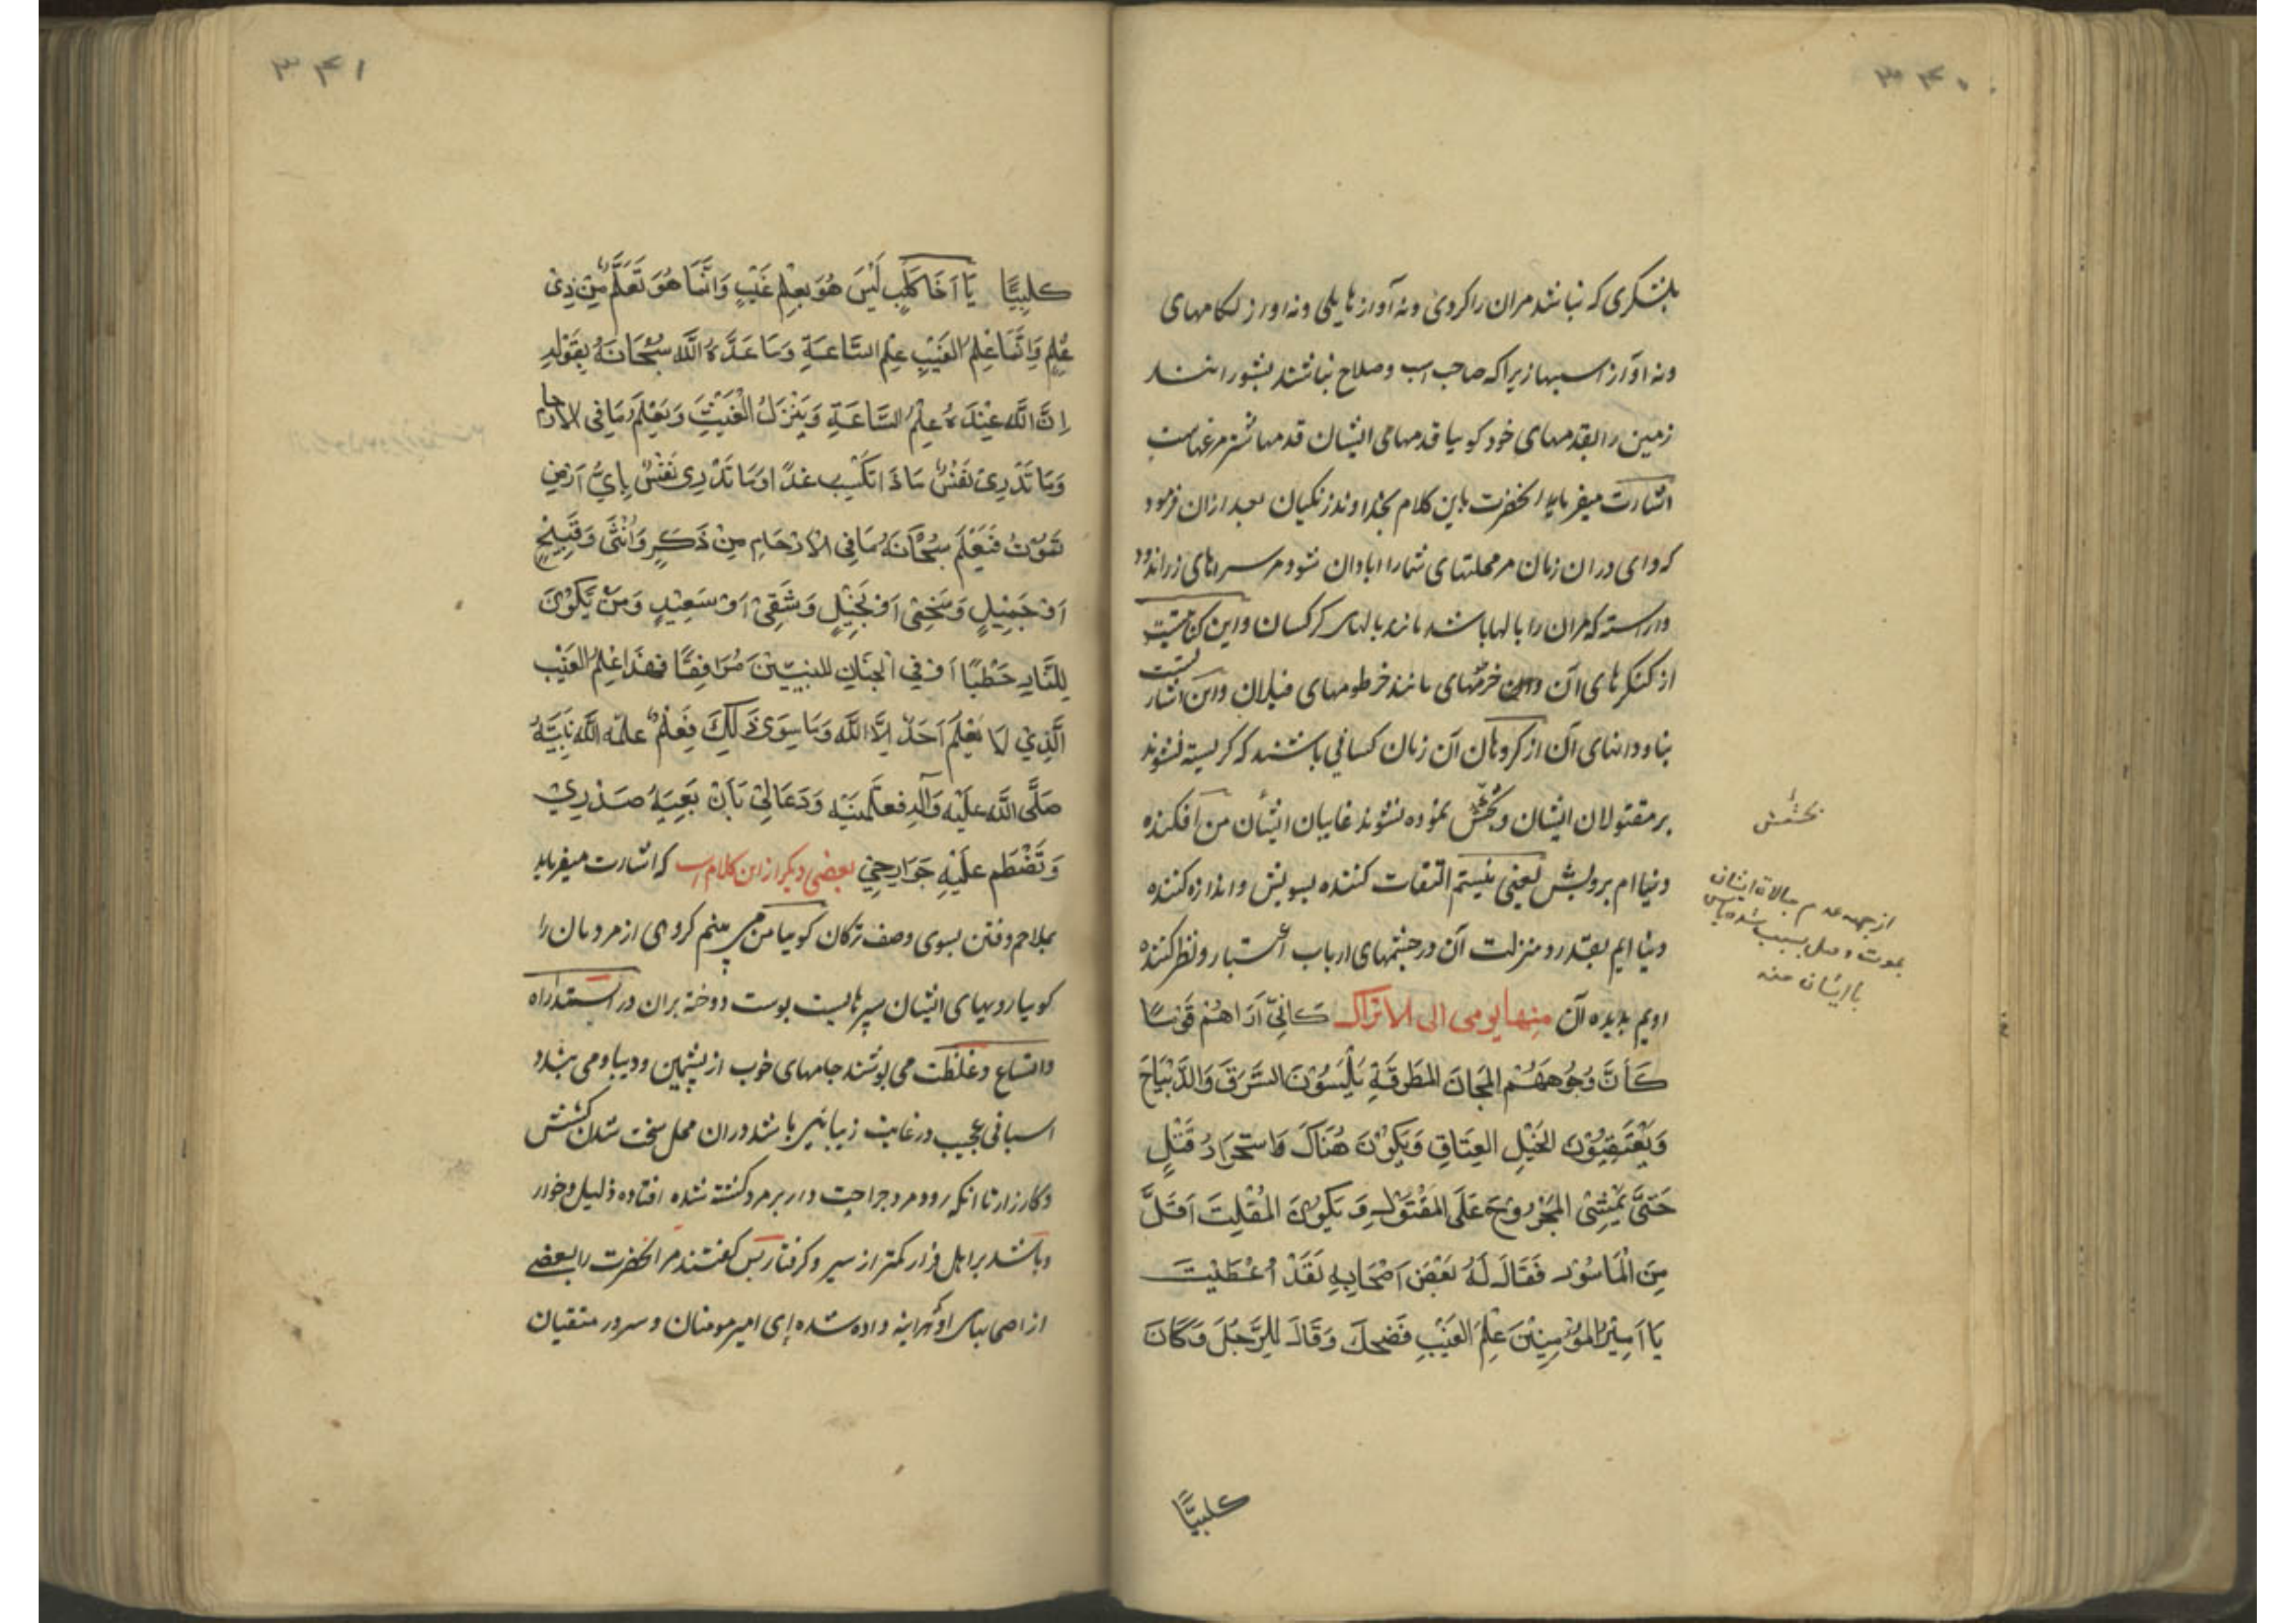 ۳۴۰
بلشکری که نباشد مران را کردی ونه آوازهایلی ونه اواز لکامهای
ونه اوآز اسبها زیرا که صاحب اسب وصلاح نباشند بشورانند
زمین را بقدمهای خود کویا قدمهامی ایشان قدمها شترمرغهاست
اشارت میفرماید انحضرت باین کلام بخداوند زنکیان بعد ازان فرمود
که وای دران زمان مر محلتهای شما را ابادان شود ومر سراهای زراندود
واراسته که مران را بالها باشد مانند بالهای کرکسان واین کنایتست
از کنکرهای آن واین خرمهای مانند خرطومهای فیلان واین اشارتست
بناودانهای آن از کروهان آن زمان کسانی باشند که کریسته نشوند
بر مقتولان ایشان وبخشش نموده نشوند غایبان ایشان من آفکنده
دنیاام برویش یعنی نیستم التفات کننده بسویش واندازه کننده
دنیاایم بقدر ومنزلت آن در چشمهای ارباب اعتبار ونظر کننده
اویم بدیده آن منها یومی الی الاتراک كَاَنّی اَرَاهُمْ قَوْمًا
كَأَنَّ وُجُوهَهُمْ المَجَانَ المُطَرَقَةِ يَلْبَسُوْنَ السَّرَقَ وَالدَّيْبَاجَ
وَيَعْتَقِبُوْنَ الخَيْلِ العِتَاقِ وَيَكُوْنَ هُنَاكَ وَاستحرَارُ قَتْلٍ
حَتّىَ يَمْشِيَ المَجْرُوحَ عَلَى المَقْتُوْلِ وَ يَكُوْنَ المُفْلِتَ اَقَلَّ
مِنَ الْمَاسُوْرِ فَقَالَ لَهُ بَعْضَ اَصْحَابِهِ لَقَدْ اُعْطَيْتَ
يَا اَمِيْرَ المُوْمِنِيْنَ عِلْمَ الغَيْبِ فَضَحِكَ وَقَالَ لِلرَّجُلَ وَكَانَ
كلبيًّا
بخشش
از جهه عدم مبالاة ایشان
بموت و
با ایشان منه
۳۴۱
كلبِيًّا يَا اَخَا كَلْبٍ لَيْسَ هُوَ بِعِلْمِ غَيْبٍ وَاِنَّمَا هُوَ تَعَلُّمٌ مِنْ ذِىْ
عِلْمٍ وَاِنَّمَا عِلْمُ الغَيْبِ عِلْمِ السَّاعَةِ وَمَا عَدَّدَهُ اللَّه سُبْحَانَهُ بِقَوْلِهِ
اِنَّ اللَّه عِنْدَهُ عِلْمُ السَّاعَةِ وَيَنْزِلُ الْغَيْثَ وَيَعْلَمُ مَا فِى الْاَرْحَام
وَمَا تَدْرِىْ نَفْسٌ مَا ذَا تَكْسِبُ غَدًا وَمَا تَدْرِى نَفْسٌ بِاَيِّ اَرْضٍ
تَمَوْتُ فَيَعْلَمُ سُبْحَانَهُ مَا فِى الْاَرْحَامِ مِنْ ذَكَرٍ وَاُنْثَى وَقَبِيْحٍ
اَوْ جَمِيْلٍ وَسَخِيٍ اَوْ بَخِيْلٍ وَشَقِىٍ اَوْ سَعِيْدٍ وَمَنْ يَكُوْنَ
لِلنَّارِ حَطَبًا اَوْ فِي الْجِنَانِ للنبيّيْنَ مُرَافِقًا فَهَذَا عِلْمُ الغَيْبِ
الَّذِيْ لَا يَعْلَمُ اَحَدٌ اِلَّا اللَّه وَمَا سِوَى ذَالِكَ فَعِلْمٌ علمّه اللَّه نَبِيَّهُ
صَلَّى اللَّه عَلَيْهِ وَآلِهِ فَعَلَّمَنِيْهِ وَدَعَا لِيْ بَاَنْ يَعِيَهُ صَدْرِيْ
وَتَضْطَم عَلَيْهِ جَوَارِحِيْ بعضی دیکر از این کلام است که اشارت میفرماید
بملاحم وفتن بسوی وصف ترکان کویا من می بینم کروهی از مردمان را
کویا رویهای ایشان سپرهایست پوست دوخته بران در استداراه
واتساع وغلظت می پوشند جامهای خوب از پشمین ودیبا ومی بندد
اسبانی عجیب در غایت زیبائی باشد دران محل سخت شدن کشش
وکارزار تا انکه رود مرد جراحت دار بر مرد کشته شده افتاده ذلیل وخوار
وباشد بر اهل فرار کمتر از سیر وکرفتار پس کفتند مر انحضرت را بعضی
از اصحاب او هراینه داده شده ای امیر مومنان و سرور متقیان